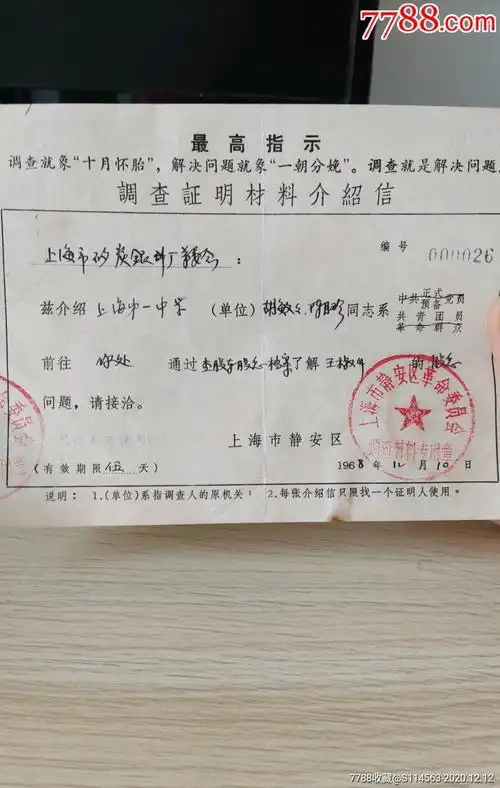 7788.com
最高指示
调查就象“十月怀胎”，解决问题就象“一朝分娩”。调查就是解决问题。
調查証明材料介紹信
编号 000026
上海市 炭銀 厂革委会：
兹介绍 上海市一中学 (单位) 胡敏 同志系 中共正式预备党员 共青团员 革命群众
前往 你处 通过 查股东股息档案了解 王 的 股息
问题，请接洽。
上海市静安区
上海市静安区革命委员会
调查材料专用章
革委会
(有效期限伍天)
1968年11月10日
说明：1.(单位)系指调查人的原机关；2.每张介绍信只限找一个证明人使用。
7788收藏@S114563-2020.12.12